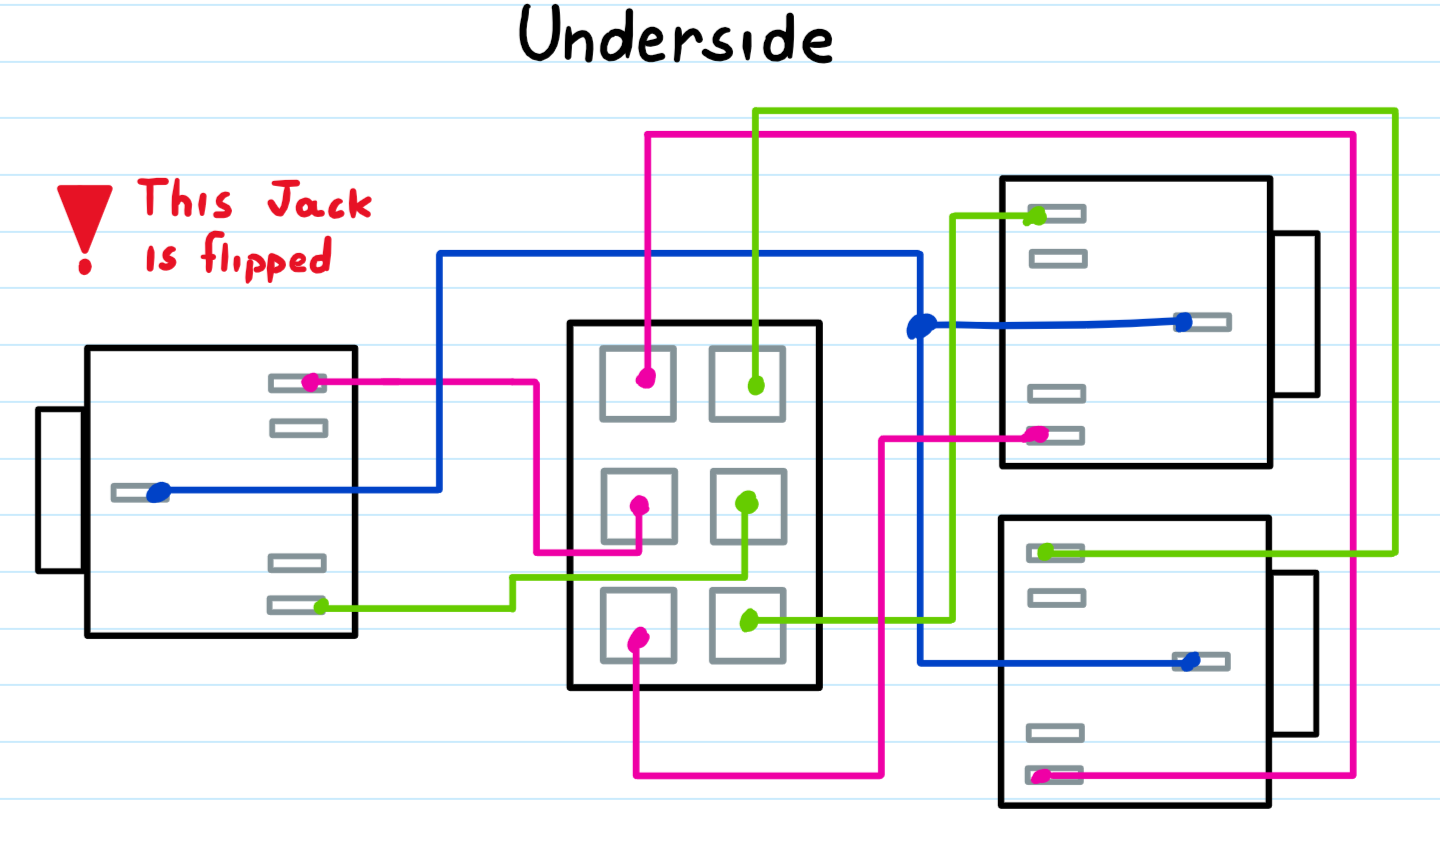 Underside
This Jack
is flipped